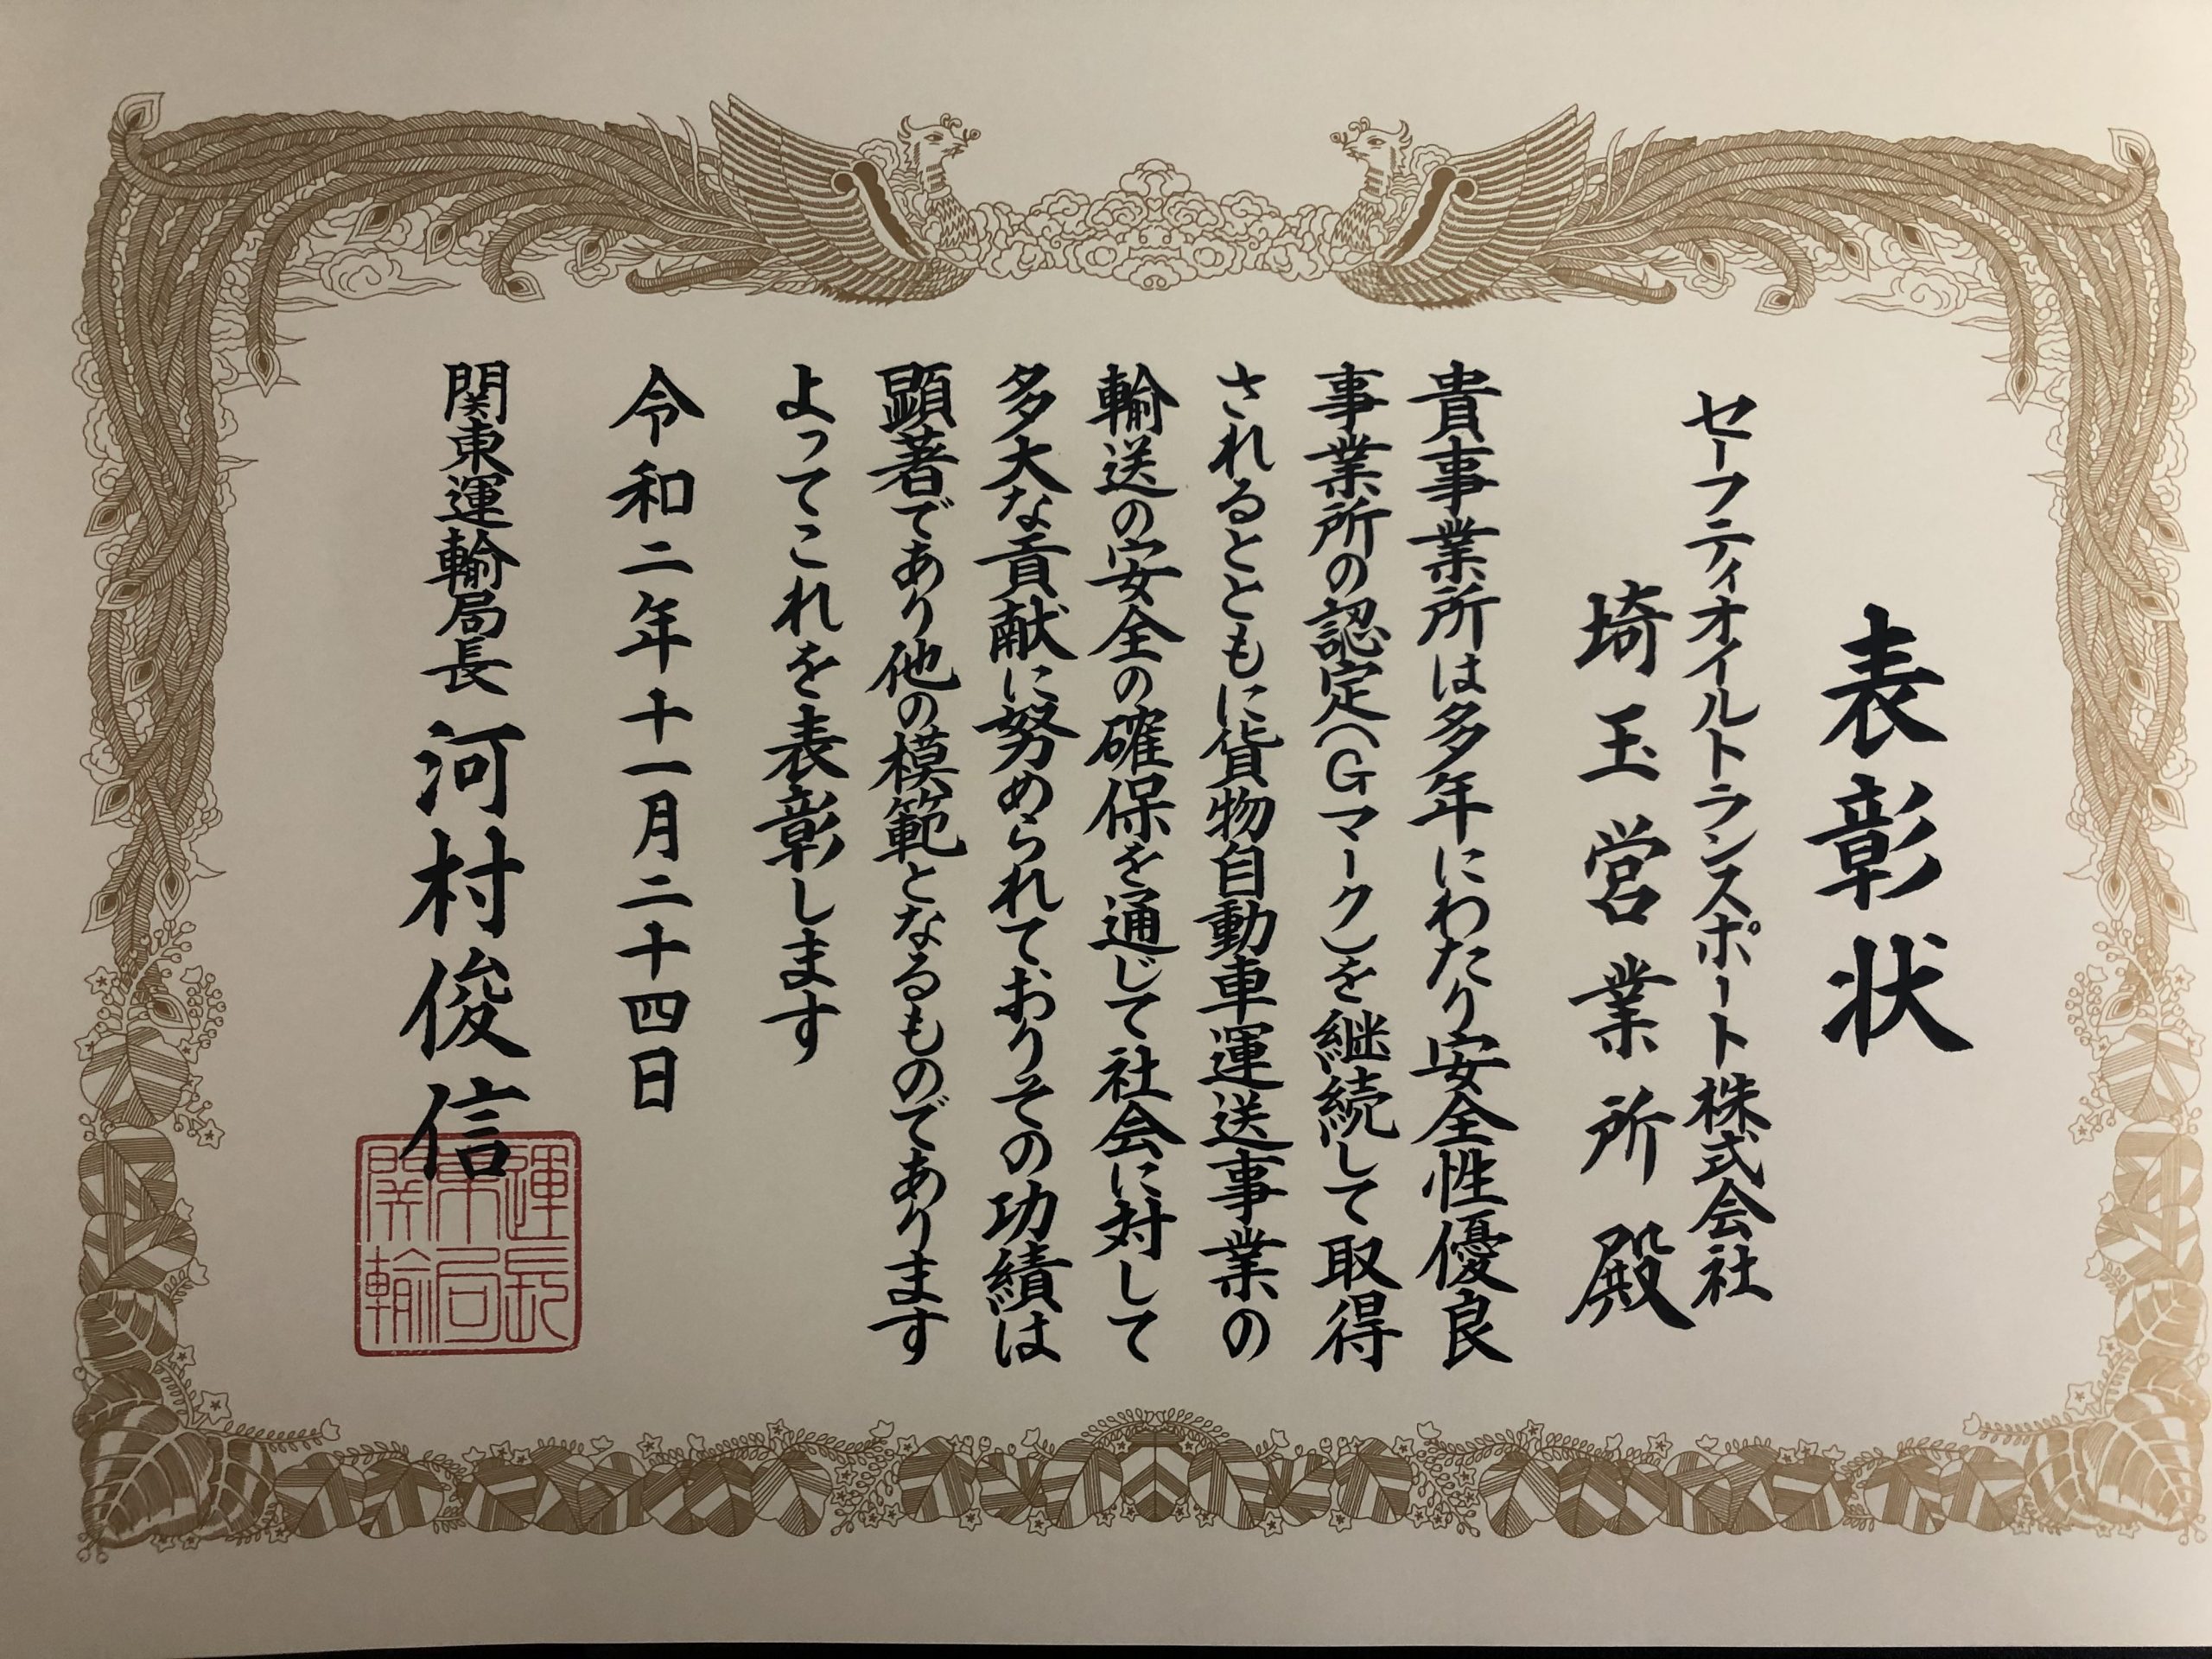 表彰状
セーフティオイルトランスポート株式会社
埼玉営業所殿
貴事業所は多年にわたり安全性優良
事業所の認定(Gマーク)を継続して取得
されるとともに貨物自動車運送事業の
輸送の安全の確保を通じて社会に対して
多大な貢献に努められておりその功績は
顕著であり他の模範となるものであります
よってこれを表彰します
令和二年十一月二十四日
関東運輸局長 河村俊信
運長
東局
関輸